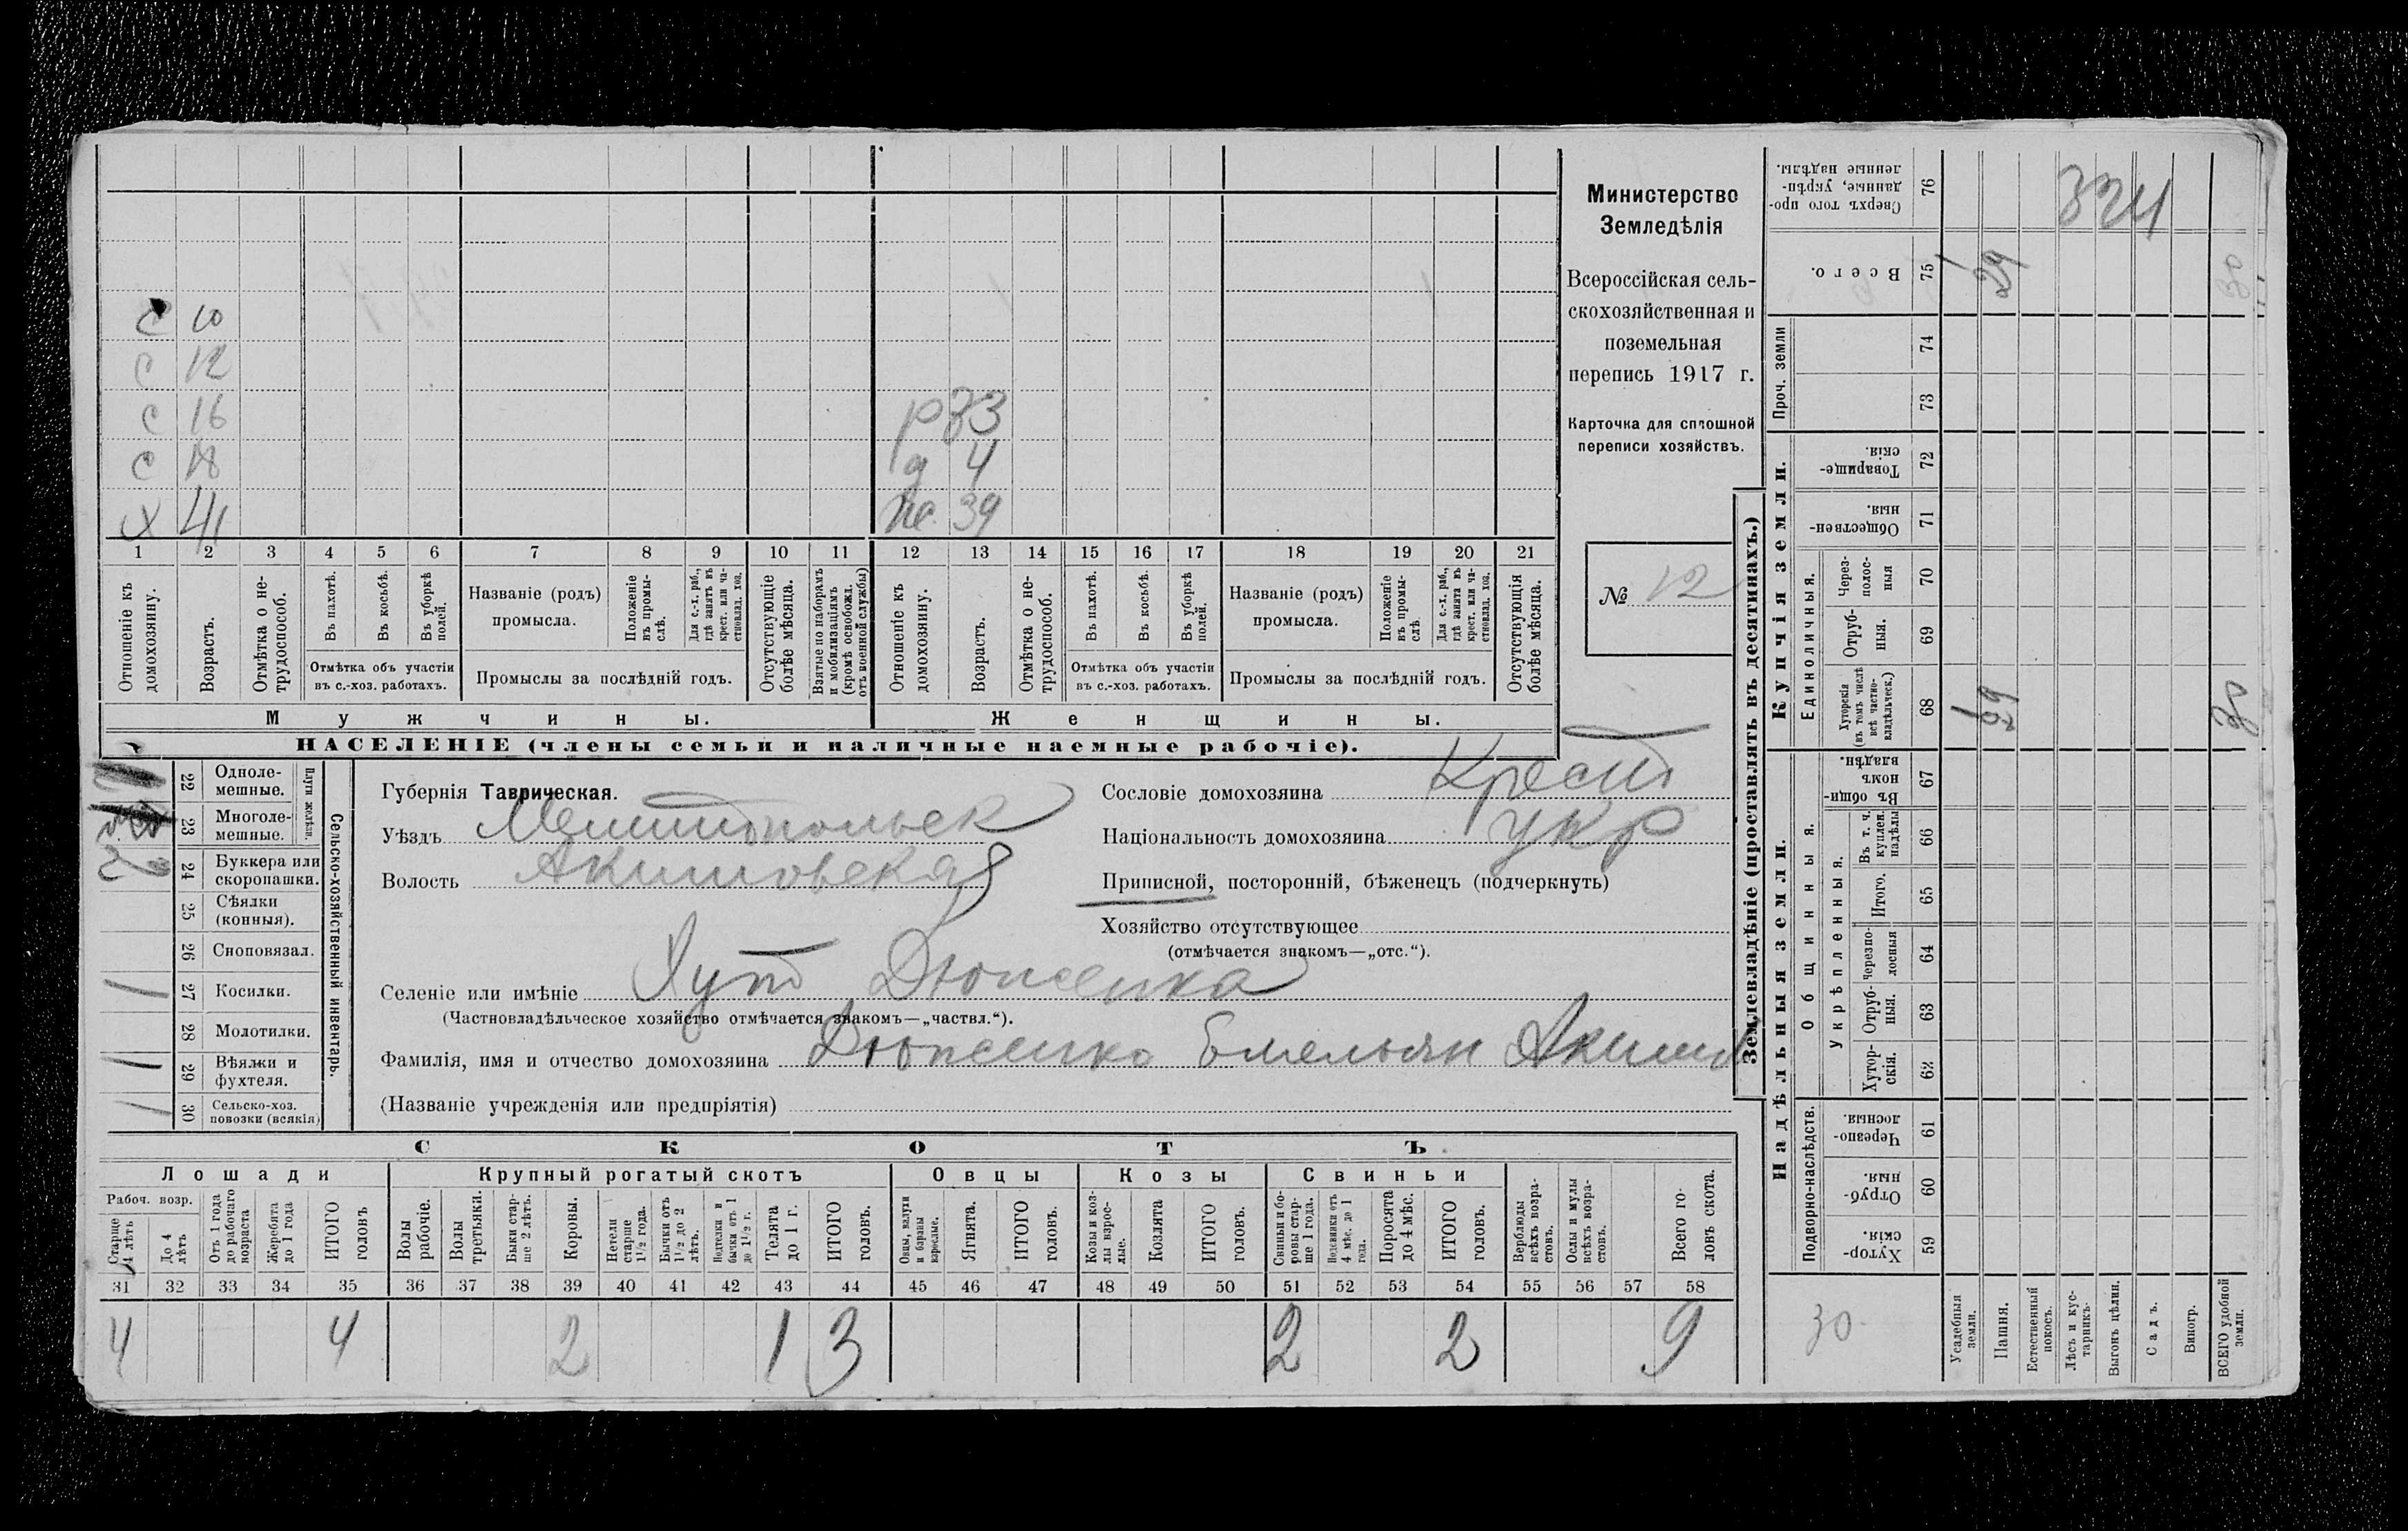 Министерство
Земледѣлія
Всероссійская сель-
скохозяйственная и
поземельная
перепись 1917 г.
Карточка для сплошной
переписи хозяйствъ.
№ 12
С 10
С 12
С 16
С 18
Х 41
р 33
д 4
же 39
1 2 3 4 5 6 7 8 9 10 11 12 13 14 15 16 17 18 19 20 21
Отношеніе къ домохозяину.
Возрастъ.
Отмѣтка о не-
трудоспособ.
Въ пахотѣ.
Въ косьбѣ.
Въ уборкѣ
полей.
Отмѣтка объ участіи
въ с.-хоз. работахъ.
Названіе (родъ)
промысла.
Положеніе
въ промы-
слѣ.
Для с.-х. раб.,
гдѣ занятъ въ
крест. или ча-
стновлад. хоз.
Промыслы за послѣдній годъ.
Отсутствующіе
болѣе мѣсяца.
Взятые по наборамъ
и мобилизаціямъ
(кромѣ освобожд.
отъ военной службы)
Отношеніе къ
домохозяину.
Возрастъ.
Отмѣтка о не-
трудоспособ.
Въ пахотѣ.
Въ косьбѣ.
Въ уборкѣ
полей.
Отмѣтка объ участіи
въ с.-хоз. работахъ.
Названіе (родъ)
промысла.
Положеніе
въ промы-
слѣ.
Для с.-х. раб.,
гдѣ занята въ
крест. или ча-
стновлад. хоз.
Промыслы за послѣдній годъ.
Отсутствующія
болѣе мѣсяца.
Мужчины.
Женщины.
НАСЕЛЕНІЕ (члены семьи и наличные наемные рабочіе).
22 Одноле-
мешные.
23 Многоле-
мешные.
Плуги желѣзн.
24 Буккера или
скоропашки.
25 Сѣялки
(конныя).
26 Сноповязал.
1 27 Косилки.
28 Молотилки.
1 29 Вѣялки и
фухтеля.
1 30 Сельско-хоз.
повозки (всякія)
Сельско-хозяйственный инвентарь.
Губернія Таврическая.
Уѣздъ Мелитопольск
Волость Акимовская
Сословіе домохозяина Крест
Національность домохозяина укр
Приписной, посторонній, бѣженецъ (подчеркнуть)
Хозяйство отсутствующее
(отмѣчается знакомъ—„отс.“).
Селеніе или имѣніе Хут Дюженка
(Частновладѣльческое хозяйство отмѣчается знакомъ—„частвл.“).
Фамилія, имя и отчество домохозяина Дюженко Емельян Аким
(Названіе учрежденія или предпріятія)
СКОТЪ
Лошади
Крупный рогатый скотъ
Овцы
Козы
Свиньи
Рабоч. возр.
Старше
4 лѣтъ
До 4
лѣтъ
Отъ 1 года
до рабочаго
возраста
Жеребята
до 1 года
ИТОГО
головъ
Волы
рабочіе.
Волы
третьяки.
Быки стар-
ше 2 лѣтъ.
Коровы.
Нетели
старше
1½ года.
Бычки отъ
1½ до 2
лѣтъ.
Нетелки и
бычки отъ 1
до 1½ г.
Телята
до 1 г.
ИТОГО
головъ.
Овцы, валухи
и бараны
взрослые.
Ягнята.
ИТОГО
головъ.
Козы и коз-
лы взрос-
лые.
Козлята
ИТОГО
головъ.
Свиньи и бо-
ровы стар-
ше 1 года.
Подсвинки отъ
4 мѣс. до 1
года.
Поросята
до 4 мѣс.
ИТОГО
головъ.
Верблюды
всѣхъ возра-
стовъ.
Ослы и мулы
всѣхъ возра-
стовъ.
Всего го-
ловъ скота.
31 32 33 34 35 36 37 38 39 40 41 42 43 44 45 46 47 48 49 50 51 52 53 54 55 56 57 58
4 4 2 1 3 2 2 9
Землевладѣніе (проставлять въ десятинахъ.)
Сверхъ того про-
данные, укрѣп-
ленные надѣлы.
76
324
Всего.
75
1 29 30
Проч. земли
74
73
Купчія земли.
Товарище-
скія.
72
Обществен-
ныя.
71
Единоличныя.
Через-
полос-
ныя
70
Отруб-
ныя.
69
Хуторскія
(въ томъ числѣ
всѣ частно-
владѣльческ.)
68
1 29 30
Надѣльныя земли.
Общинныя.
Въ общи-
номъ
владѣн.
67
Укрѣпленныя.
Въ т. ч.
куплен.
надѣлы
66
Итого.
65
Черезпо-
лосныя
64
Отруб-
ныя.
63
Хутор-
скія.
62
Подворно-наслѣдств.
Черезпо-
лосныя.
61
Отруб-
ныя.
60
Хутор-
скія.
59
30
Усадебныя
земли.
Пашня.
Естественный
покосъ.
Лѣсъ и кус-
тарникъ.
Выгонъ цѣлин.
Садъ.
Виногр.
ВСЕГО удобной
земли.